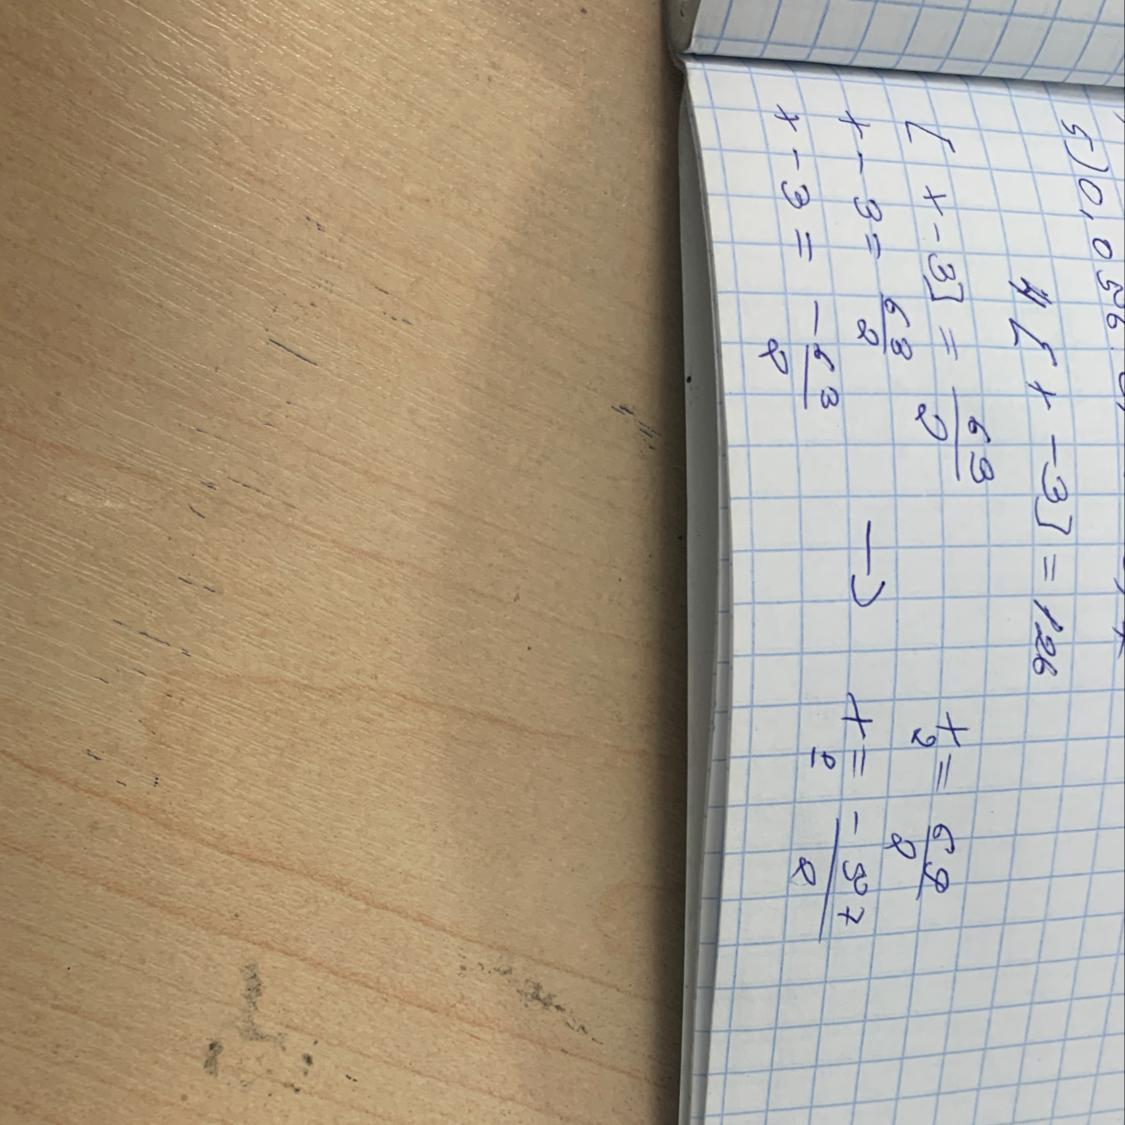 5) 0,056
4[x-3]=126
[x-3]=63/2
x-3=63/2
x-3=-63/2
→
x₂=69/2
x=-57/2